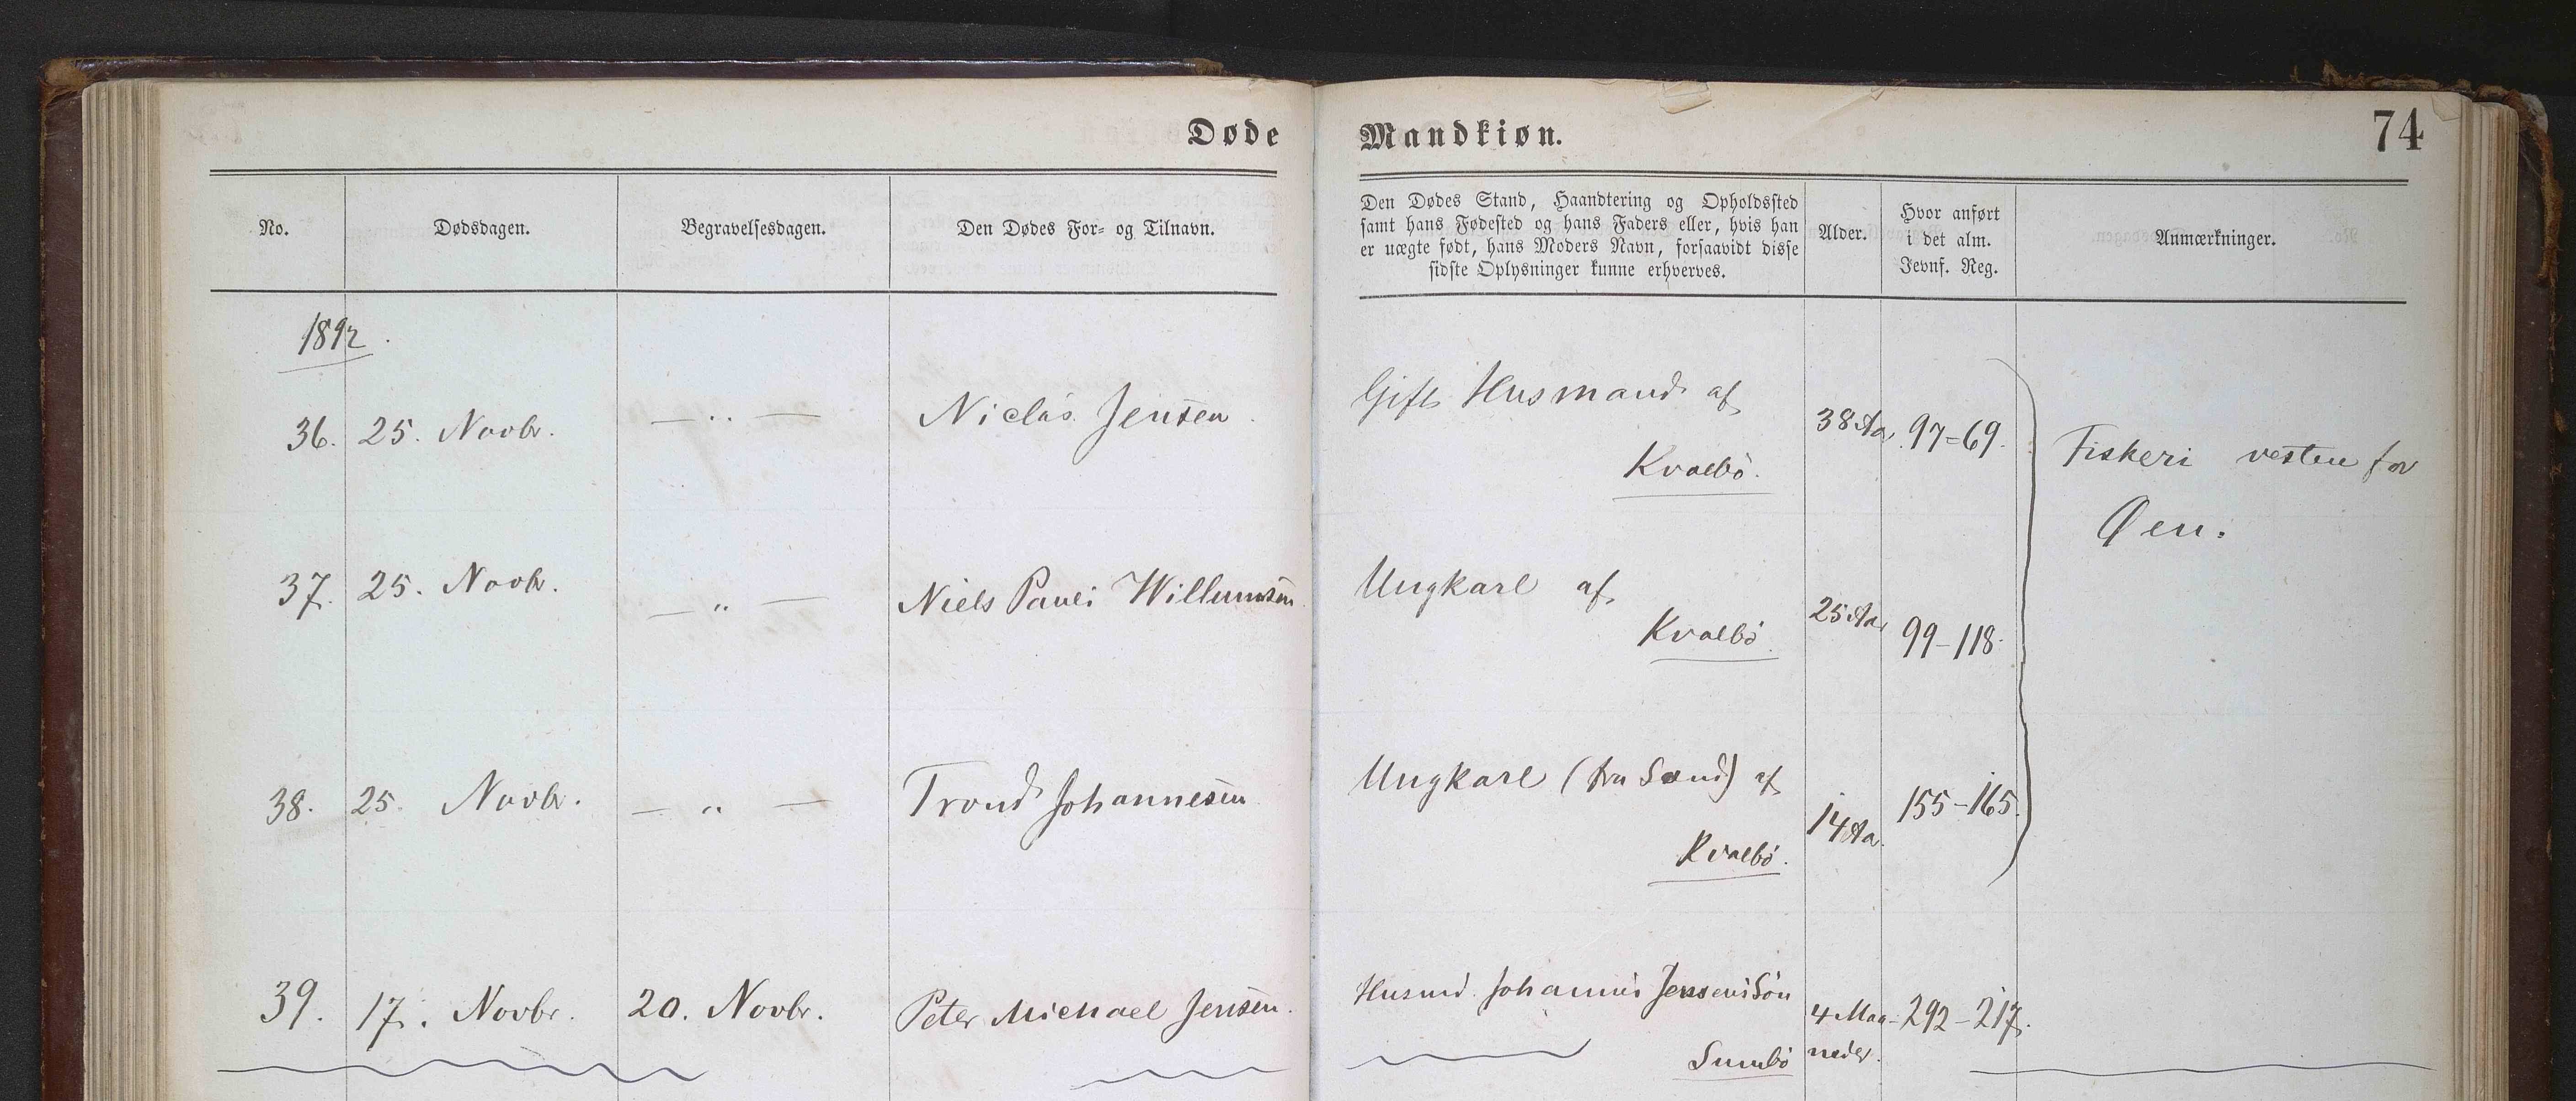 Døde Mandkiøn.
74
No.
Dødsdagen.
Begravelsesdagen.
Den Dødes For- og Tilnavn.
Den Dødes Stand, Haandtering og Opholdssted
samt hans Fødested og hans Faders eller, hvis han
er uægte født, hans Moders Navn, forsaavidt disse
sidste Oplysninger kunne erhverves.
Alder.
Hvor anført
i det alm.
Jevnf. Reg.
Anmærkninger.
1892.
36. 25. Novbr. — „ — Niclas Jensen. Gift Husmand af
Kvalbø. 38 Aar 97=69. Fiskeri vesten for
Øen.
37. 25. Novbr. — „ — Niels Pauli Willumsen Ungkarl af
Kvalbø. 25 Aar 99-118.
38. 25. Novbr. — „ — Trond Johannesen Ungkarl (fra Sand) af
Kvalbø. 14 Aa. 155-165.
39. 17. Novbr. 20. Novbr. Peter Michael Jensen. Husmd. Johannes Jensens Søn
Sumbø
4 Maa-
neder.
292-217.